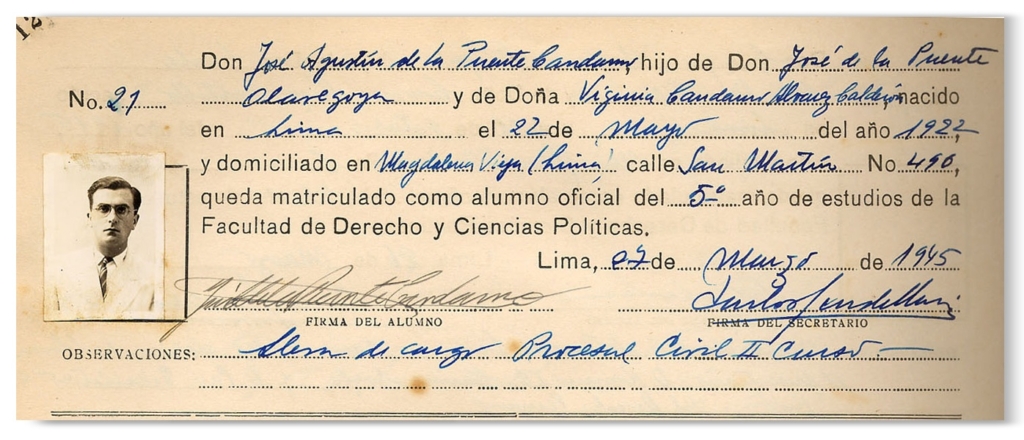 Don José Agustín de la Puente Candamo, hijo de Don José de la Puente
No. 21 Olavegoya y de Doña Virginia Candamo Alvarez Calderón, nacido
en Lima el 22 de Mayo del año 1922,
y domiciliado en Magdalena Vieja (Lima) calle San Martín No. 490,
queda matriculado como alumno oficial del 5º año de estudios de la
Facultad de Derecho y Ciencias Políticas.
Lima, 27 de Marzo de 1945
FIRMA DEL ALUMNO FIRMA DEL SECRETARIO
OBSERVACIONES: Lleva de cargo Procesal Civil II Curso —